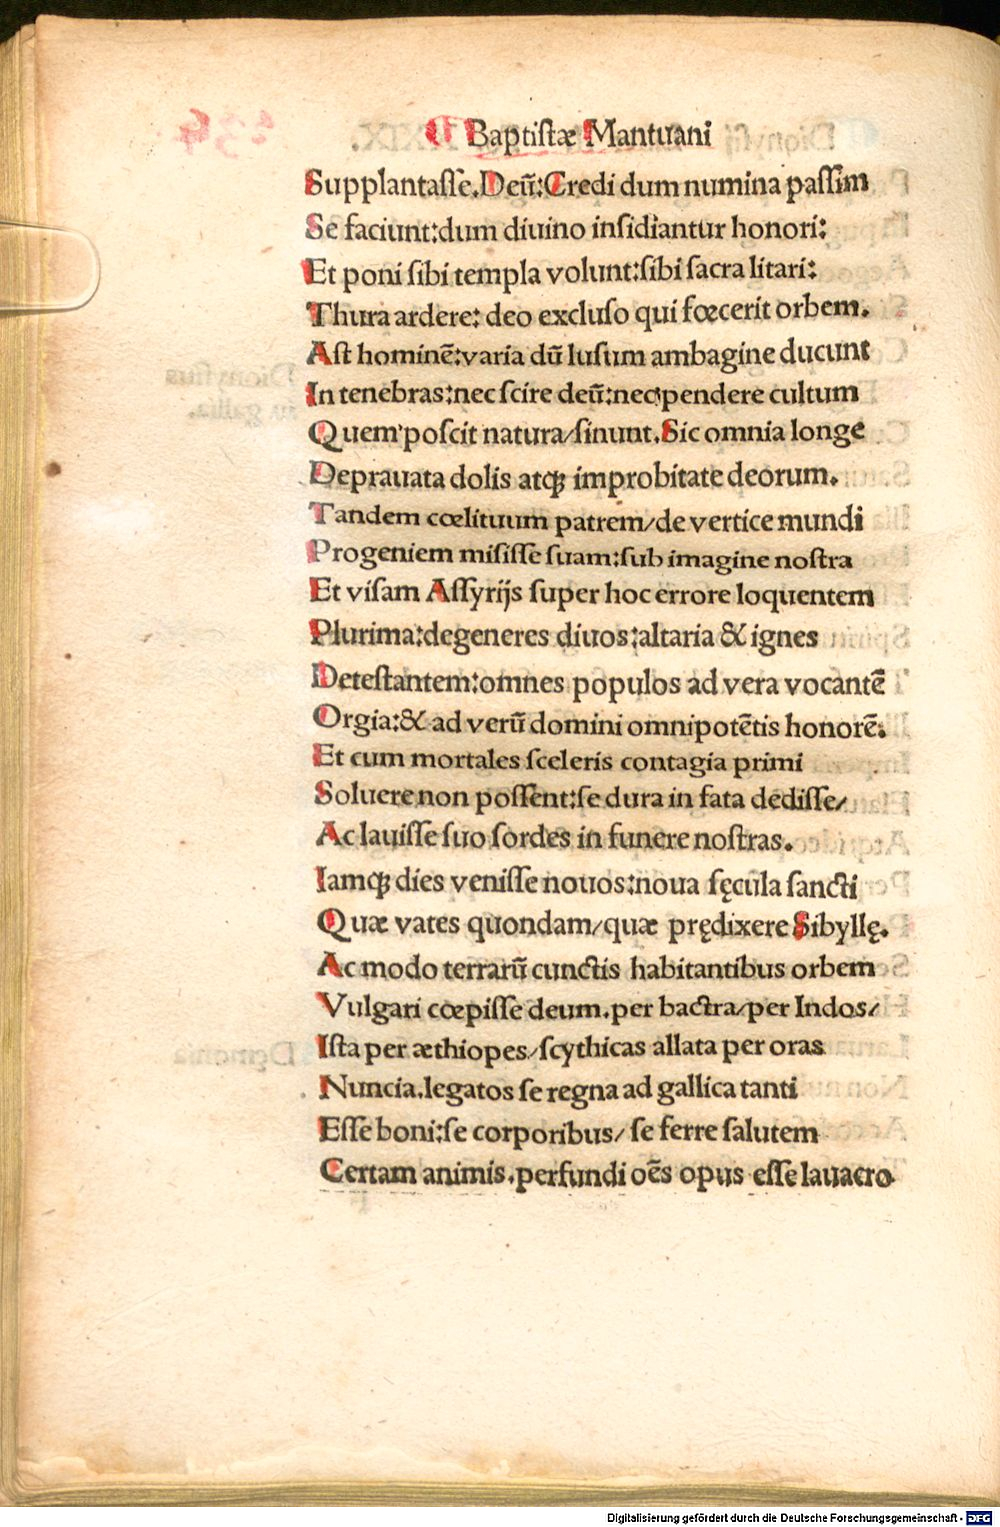 ¶ Baptistæ Mantuani
Supplantasse.Deū:Credi dum numina passim
Se faciunt:dum diuino insidiantur honori:
Et poni sibi templa volunt:sibi sacra litari:
Thura ardere: deo excluso qui fœcerit orbem.
Ast hominē:varia dū lusum ambagine ducunt
In tenebras:nec scire deū:nec pendere cultum
Quem poscit natura/sinunt.Sic omnia longe
Deprauata dolis atqꝫ improbitate deorum.
Tandem cœlituum patrem/de vertice mundi
Progeniem misisse suam:sub imagine nostra
Et visam Assyrijs super hoc errore loquentem
Plurima:degeneres diuos:altaria & ignes
Detestantem:omnes populos ad vera vocantē
Orgia:& ad verū domini omnipotētis honorē.
Et cum mortales sceleris contagia primi
Soluere non possent:se dura in fata dedisse/
Ac lauisse suo sordes in funere nostras.
Iamqꝫ dies venisse nouos:noua sęcula sancti
Quæ vates quondam/quæ prędixere Sibyllę.
Ac modo terrarū cunctis habitantibus orbem
Vulgari cœpisse deum.per bactra/per Indos/
Ista per æthiopes/scythicas allata per oras
Nuncia.legatos se regna ad gallica tanti
Esse boni:se corporibus/ se ferre salutem
Certam animis.perfundi oēs opus esse lauacro
Digitalisierung gefördert durch die Deutsche Forschungsgemeinschaft - DFG